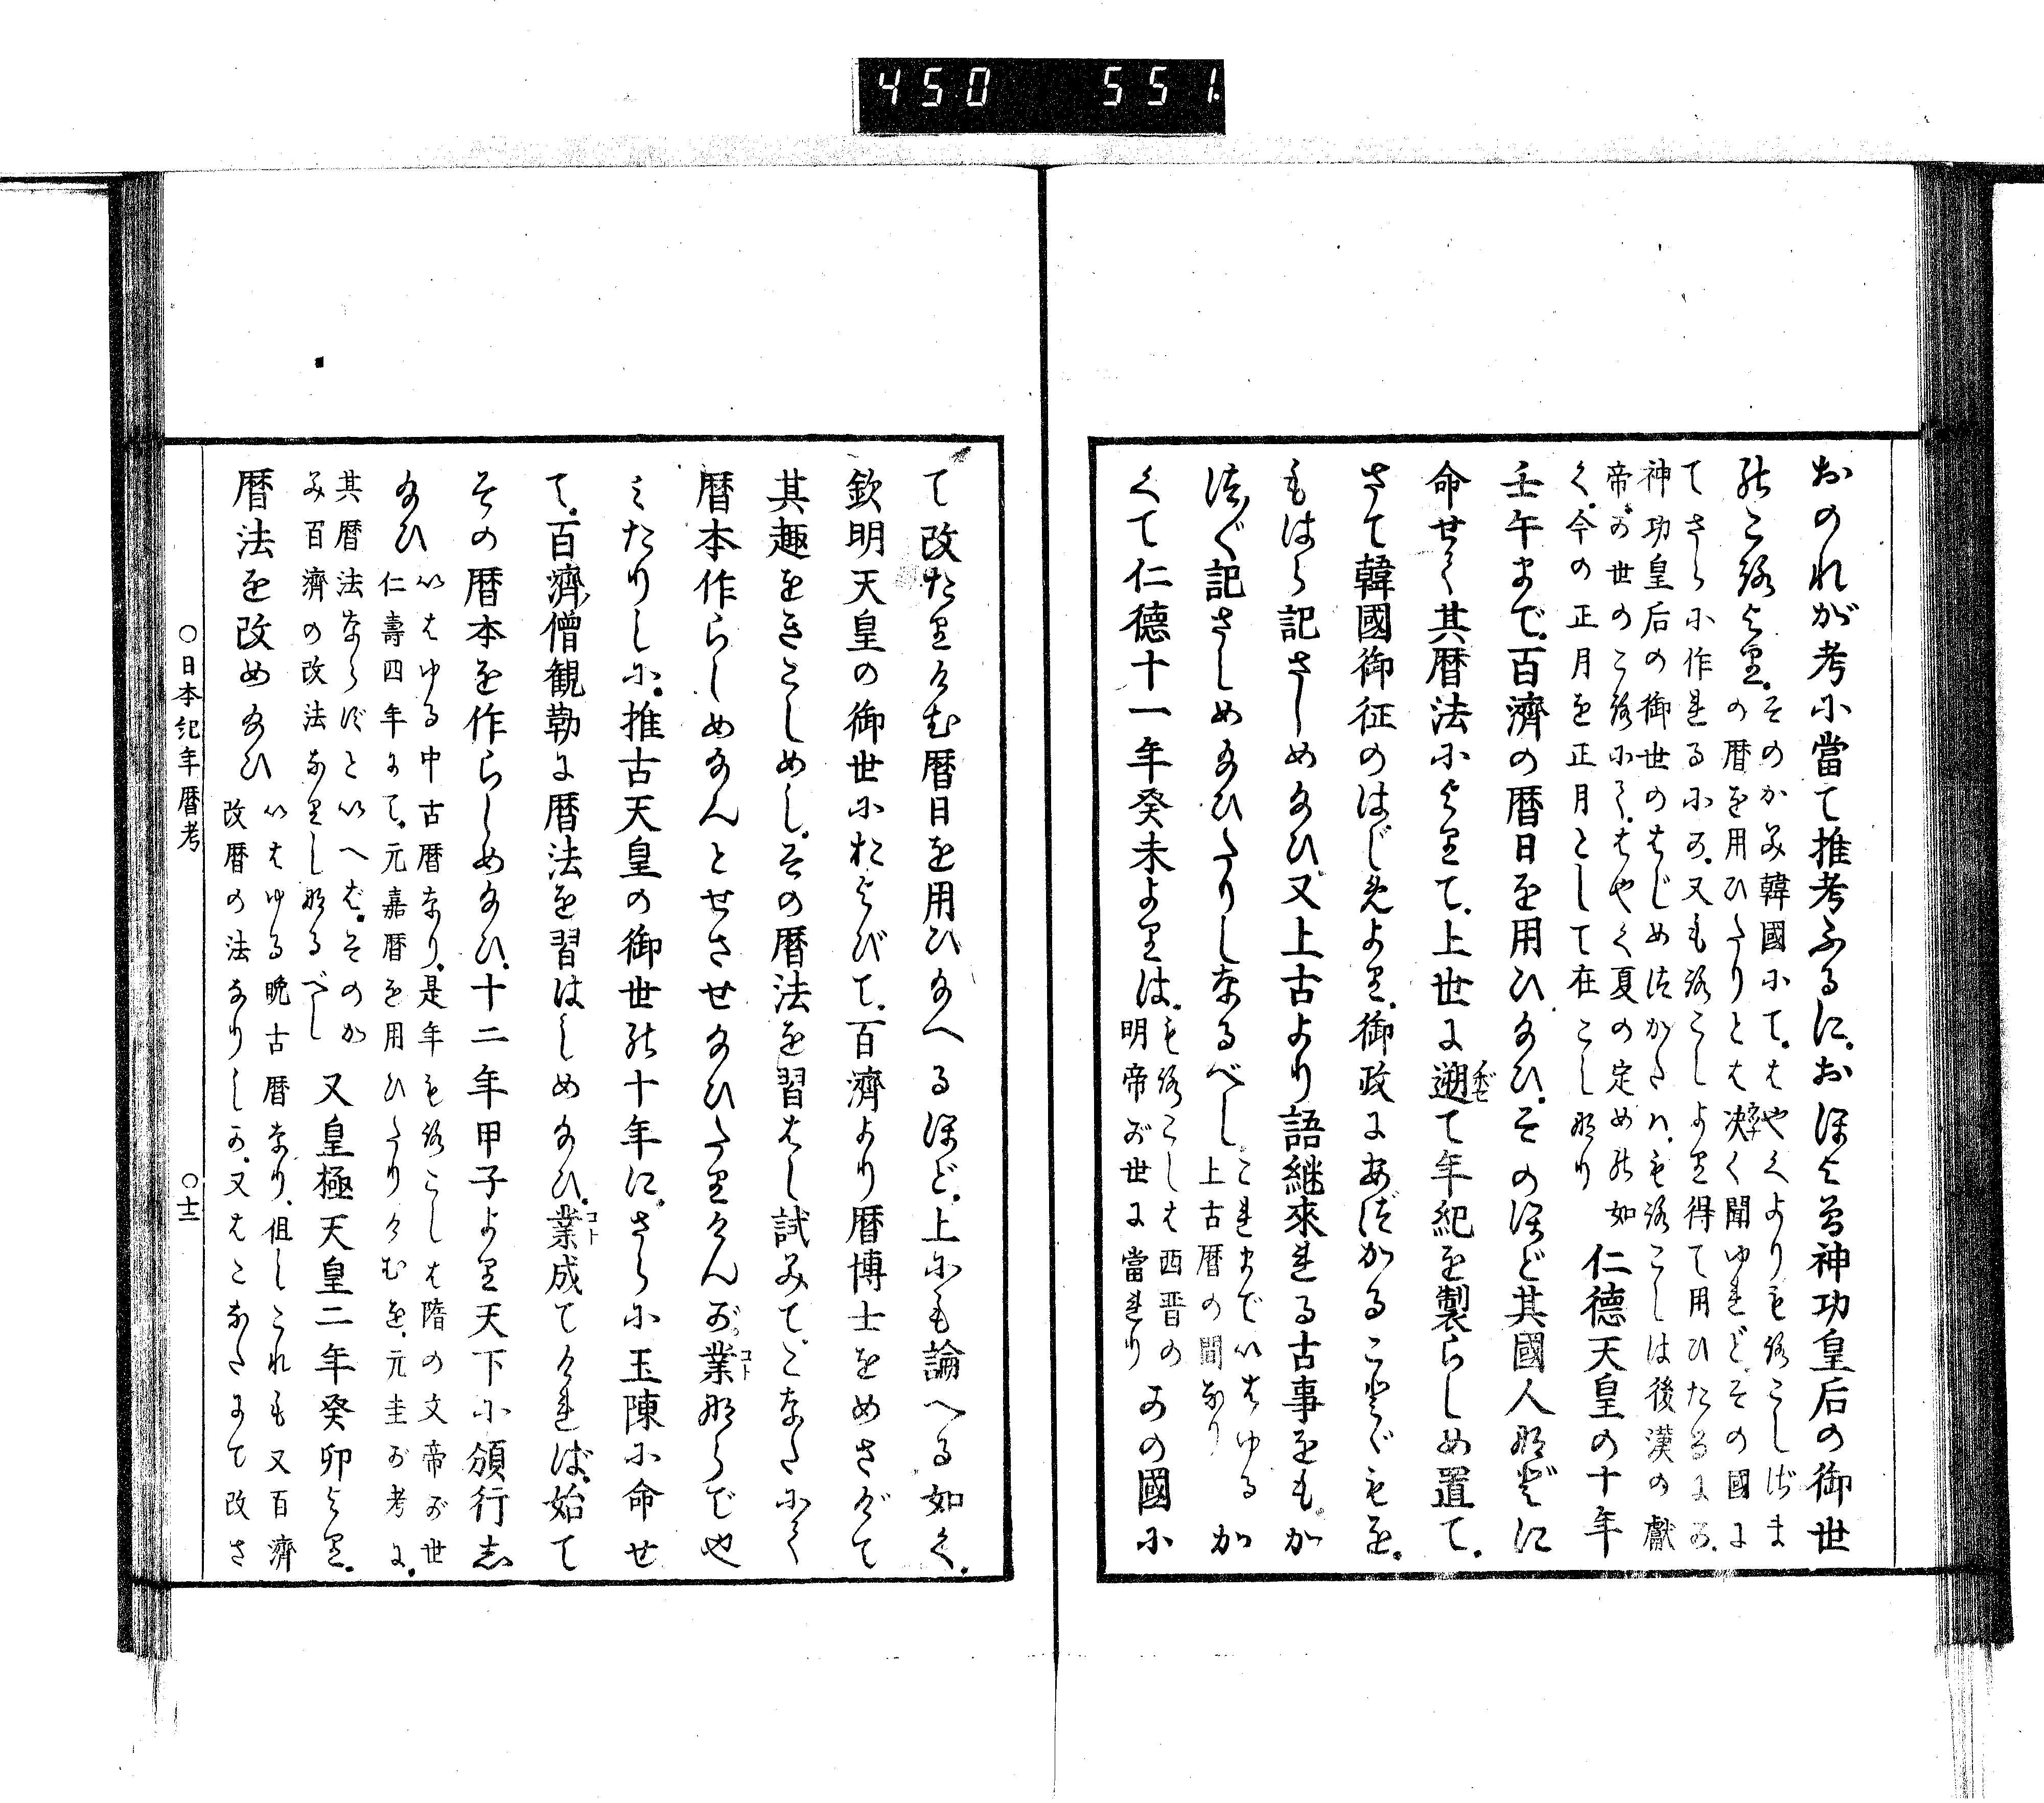 450 551.
おのれが考に當て推考ふるに。おほよそ神功皇后の御世
のころより。
そのかみ韓國にて。はやくよりもろこしざま
の曆を用ひたりとは決く聞ゆれど。その國に
てさらに作れるにか。又もろこしより得て用ひたるにか。
神功皇后の御世のはじめつかたハ、もろこしは後漢の獻
帝の世のころにて。はやく夏の定めの如
く。今の正月を正月として在こしなり
仁德天皇の十年
壬午まで。百濟の曆日を用ひ給ひ。そのほど其國人などに
命せて其曆法によりて。上世に遡て年紀を製らしめ置て。
さて韓國御征のはじめより。御政にあづかることゞもを。
もはら記さしめ給ひ。又上古より語継來れる古事をも。か
つ〴〵記さしめ給ひたりしなるべし
これまでいはゆる
上古曆の間なり
か
くて仁德十一年癸未よりは。
もろこしは西晋の
明帝が世に當れり
かの國に
て改たりけむ曆日を用ひ給へるほど。上にも論へる如く。
欽明天皇の御世におよびて。百濟より曆博士をめさげて
其趣をきこしめし。その曆法を習はし試みて。こなたにて
曆本作らしめ給んとせさせ給ひたりけんが。業ならで也
ミたりしに。推古天皇の御世の十年に。さらに玉陳に命せ
て。百濟僧観勒に曆法を習はしめ給ひ。業成てければ。始て
その曆本を作らしめ給ひ。十二年甲子より天下に頒行志
給ひ
いはゆる中古曆なり。是年もろこしは隋の文帝が世
仁壽四年にて。元嘉曆を用ひたりけむを、元圭が考に。
其曆法ならずといへば。そのか
み百濟の改法なりしなるべし
又皇極天皇二年癸卯より。
曆法を改め給ひ
いはゆる晩古曆なり、但しこれも又百濟
改曆の法なりしか。又はこなたにて改さ
〇日本紀年曆考
〇十二